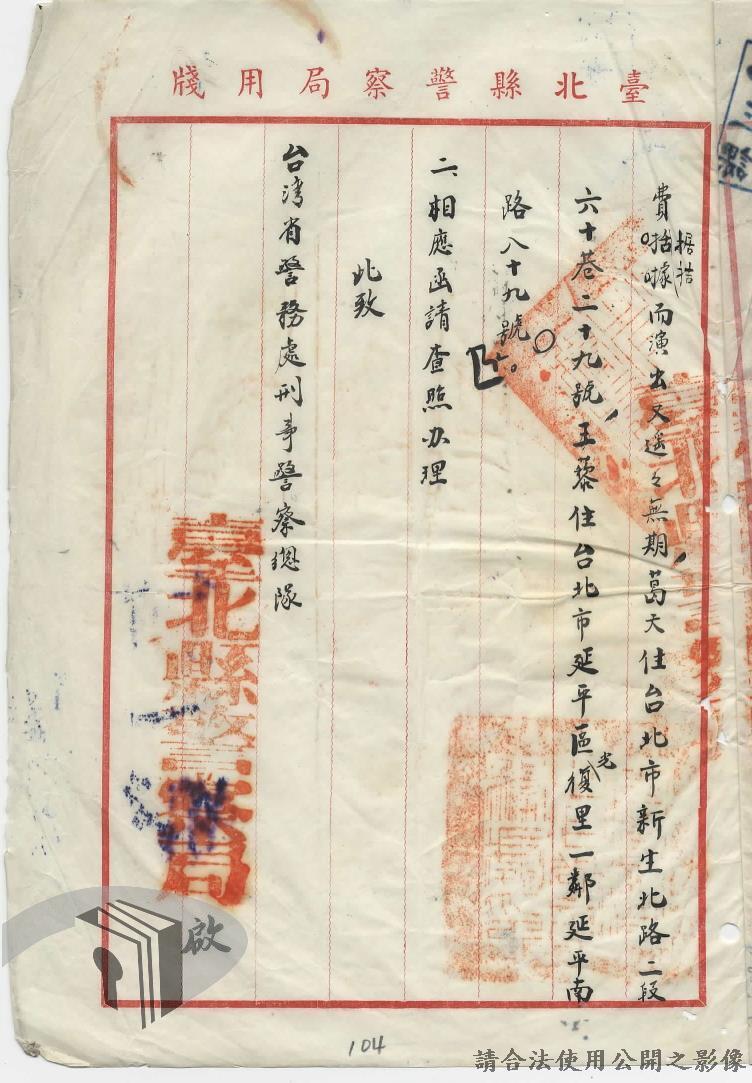 臺北縣警察局用牋
費拮據而演出又遙々無期，葛天住台北市新生北路二段
拮据
六十巷二十九號，王藜住台北市延平區復光里一鄰延平南
路八十九號。
二、相應函請查照办理
此致
台湾省警務處刑事警察總隊
臺北縣警察局
啟
104
請合法使用公開之影像